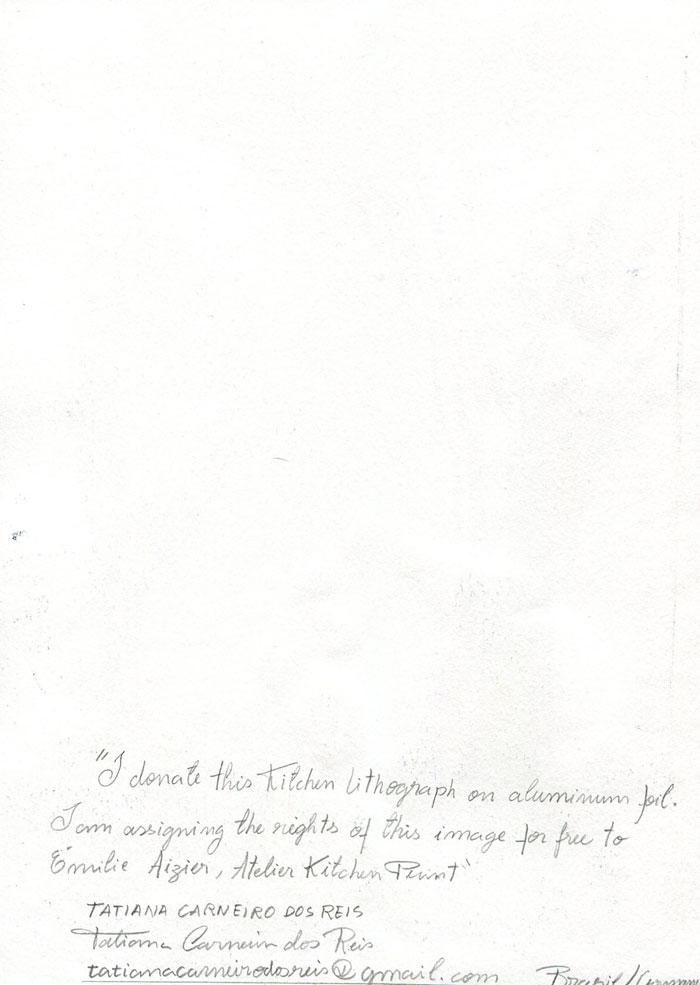 "I donate this Kitchen Lithograph on aluminum foil.
I am assigning the rights of this image for free to
Émilie Aizier, Atelier Kitchen Print"
TATIANA CARNEIRO DOS REIS
Tatiana Carneiro dos Reis
tatianacarneirodosreis@gmail.com
Brazil/